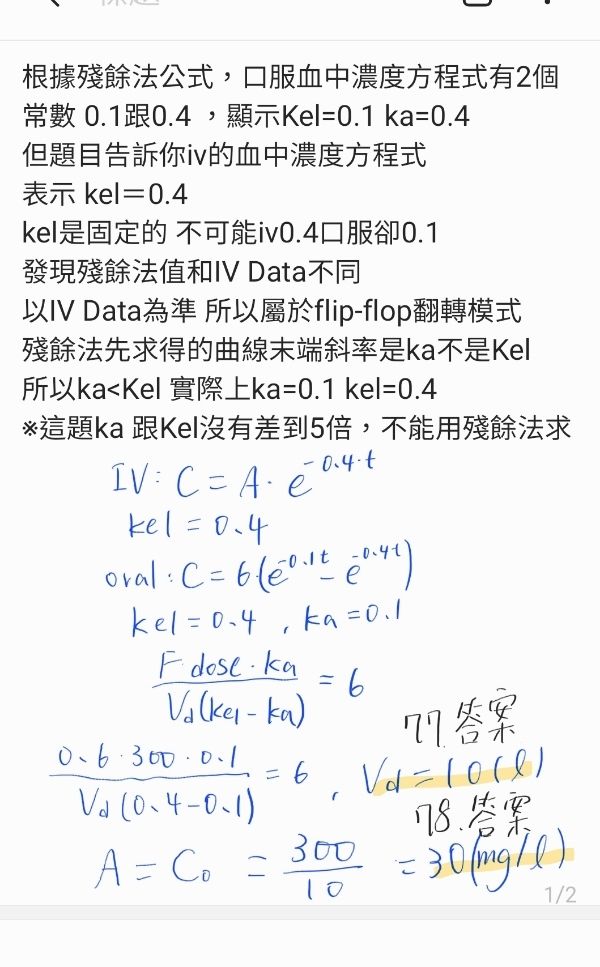 標題
根據殘餘法公式，口服血中濃度方程式有2個
常數 0.1跟0.4 ，顯示Kel=0.1 ka=0.4
但題目告訴你iv的血中濃度方程式
表示 kel＝0.4
kel是固定的 不可能iv0.4口服卻0.1
發現殘餘法值和IV Data不同
以IV Data為準 所以屬於flip-flop翻轉模式
殘餘法先求得的曲線末端斜率是ka不是Kel
所以ka<Kel 實際上ka=0.1 kel=0.4
※這題ka 跟Kel沒有差到5倍，不能用殘餘法求
IV: C = A · e^-0.4·t
kel = 0.4
oral : C = 6(e^-0.1t - e^-0.4t)
kel = 0.4 , ka = 0.1
F · dose · ka / Vd(kel - ka) = 6
77.答案
0.6 · 300 · 0.1 / Vd(0.4-0.1) = 6 , Vd = 10(l)
78.答案
A = C₀ = 300 / 10 = 30(mg/l)
1/2